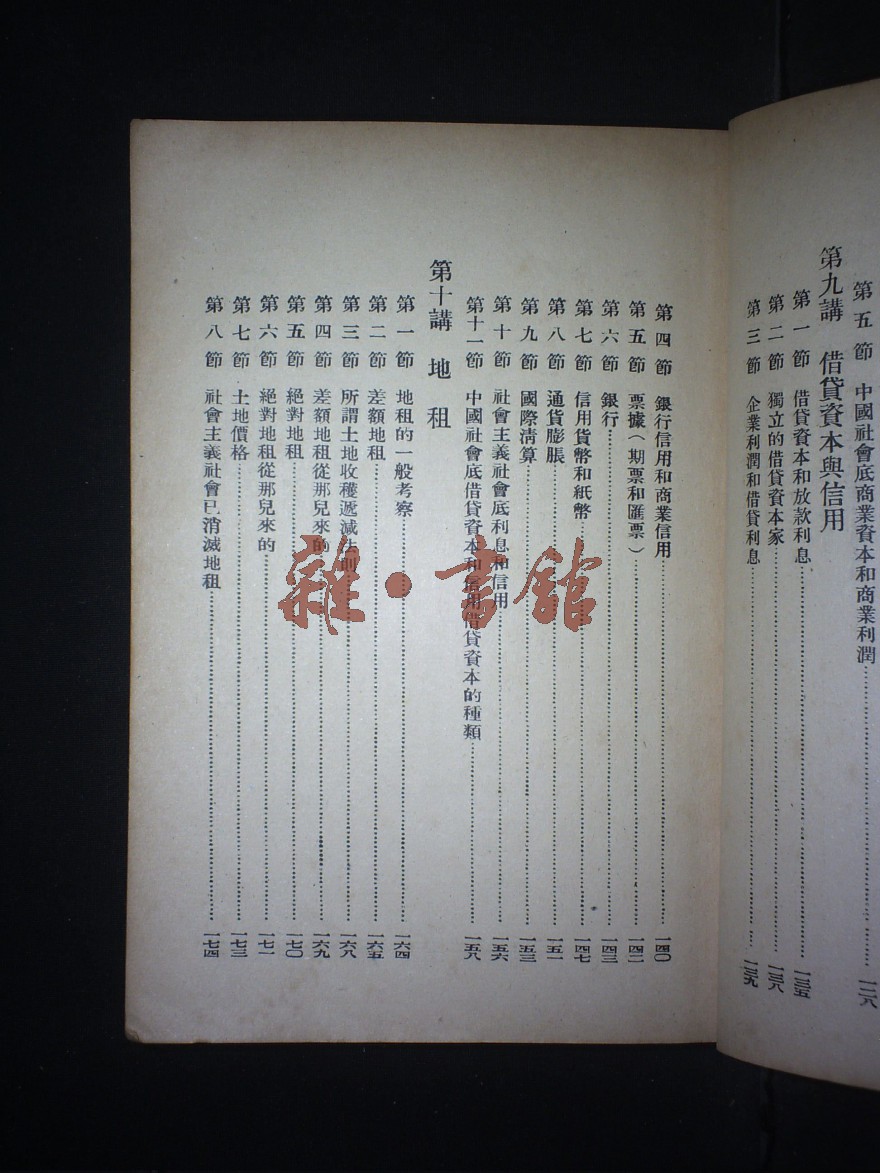 第五節 中國社會底商業資本和商業利潤……一二八
第九講 借貸資本與信用
第一節 借貸資本和放款利息……一三五
第二節 獨立的借貸資本家……一三八
第三節 企業利潤和借貸利息……一三九
第四節 銀行信用和商業信用……一四〇
第五節 票據(期票和匯票)……一四二
第六節 銀行……一四三
第七節 信用貨幣和紙幣……一四七
第八節 通貨膨脹……一五一
第九節 國際清算……一五三
第十節 社會主義社會底利息和信用……一五六
第十一節 中國社會底借貸資本和信用借貸資本的種類……一五八
第十講 地租
第一節 地租的一般考察……一六四
第二節 差額地租……一六五
第三節 所謂土地收穫遞減法則……一六八
第四節 差額地租從那兒來的……一六九
第五節 絕對地租……一七〇
第六節 絕對地租從那兒來的……一七一
第七節 土地價格……一七三
第八節 社會主義社會已消滅地租……一七四
雜·書館